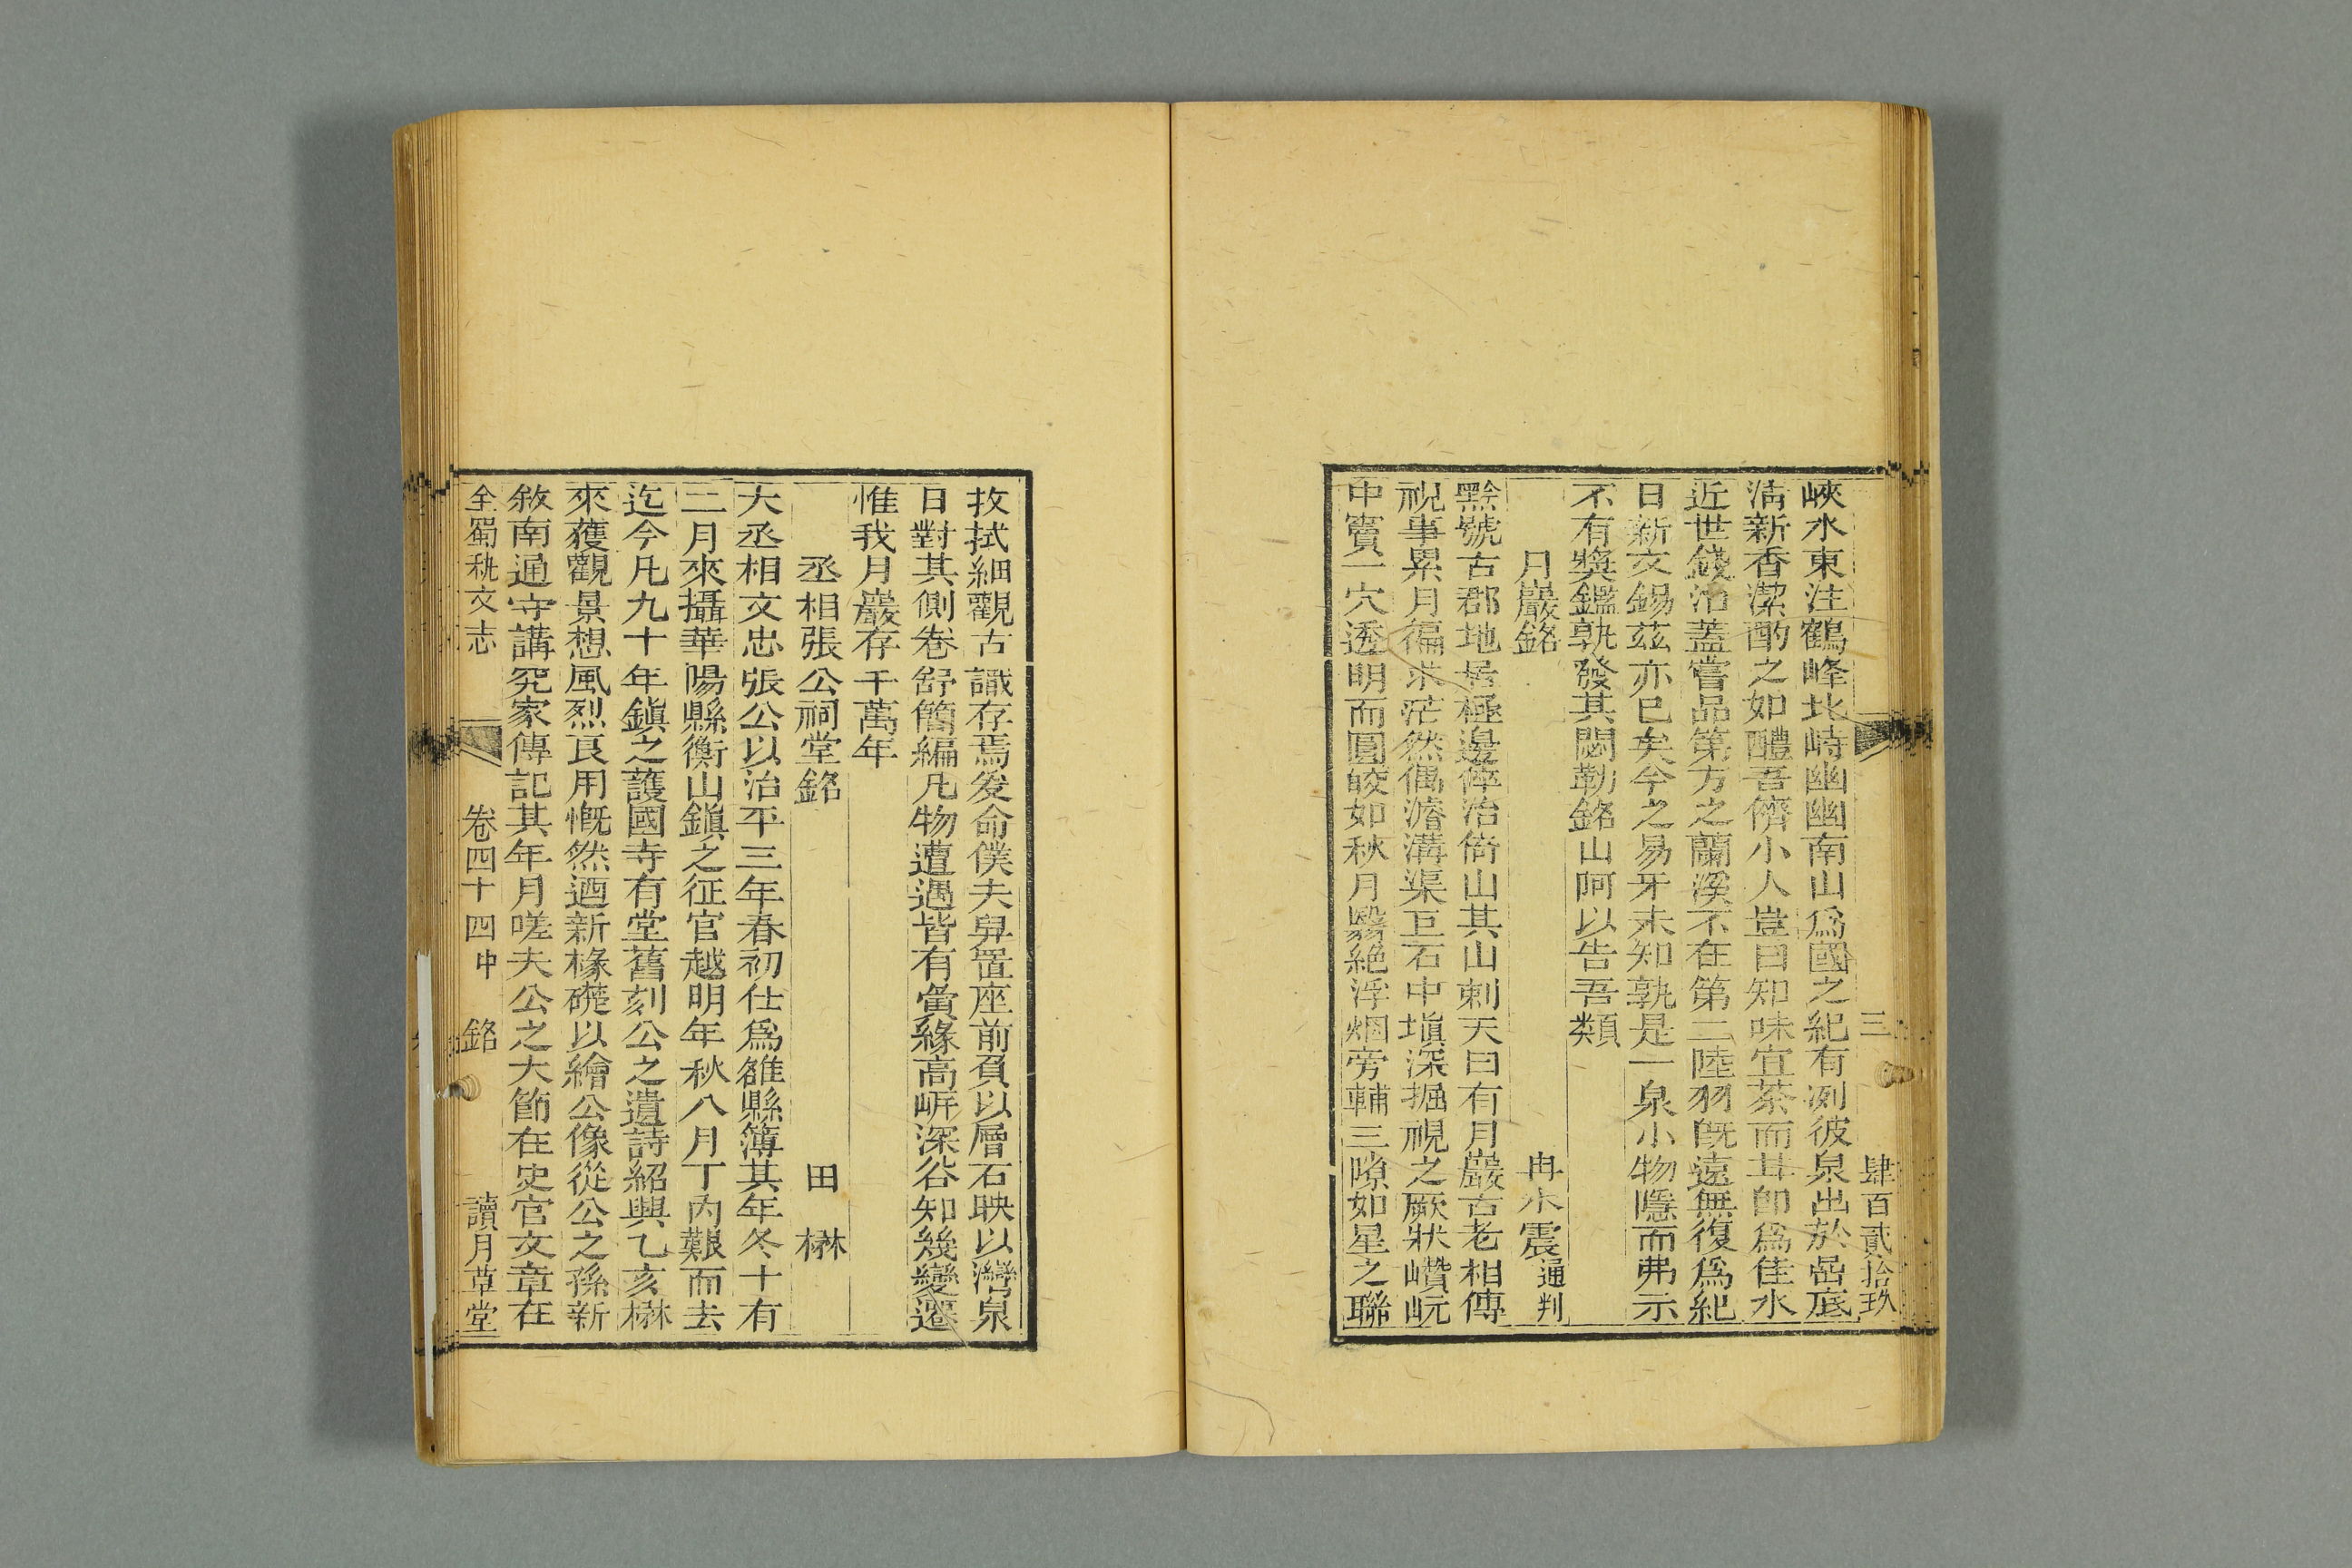 三 肆百貳拾玖
峽水東注鶴峰北峙幽幽南山爲國之紀有冽彼泉出於嵒底
潔新香潔酌之如醴吾儕小人豈曰知味宜茶而甘卽爲佳水
近世錢治蓋嘗品第方之蘭溪不在第二陸羽旣遠無復爲紀
日新文錫茲亦已矣今之易牙未知孰是一泉小物隱而弗示
不有獎鑑孰發其閟勒銘山阿以告吾類
月巖銘 冉木震通判
黔號古郡地居極邊倅治倚山其山刺天曰有月巖古老相傳
視事累月徧求茫然偶濬溝渠巨石中塡深掘視之厥狀巑岏
中竇一穴透明而圓皎如秋月翳絕浮烟旁輔三隙如星之聯
抆拭細觀古識存焉爰命僕夫舁置座前負以層石映以灣泉
日對其側卷舒簡編凡物遭遇皆有夤緣高岸深谷知幾變遷
惟我月巖存千萬年
丞相張公祠堂銘 田楙
大丞相文忠張公以治平三年春初仕爲雒縣簿其年冬十有
二月來攝華陽縣衡山鎭之征官越明年秋八月丁內艱而去
迄今凡九十年鎭之護國寺有堂舊刻公之遺詩紹興乙亥楙
來獲觀景想風烈良用慨然迺新椽礎以繪公像從公之孫新
敘南通守講究家傳記其年月嗟夫公之大節在史官文章在
全蜀秇文志 卷四十四中 銘 讀月草堂